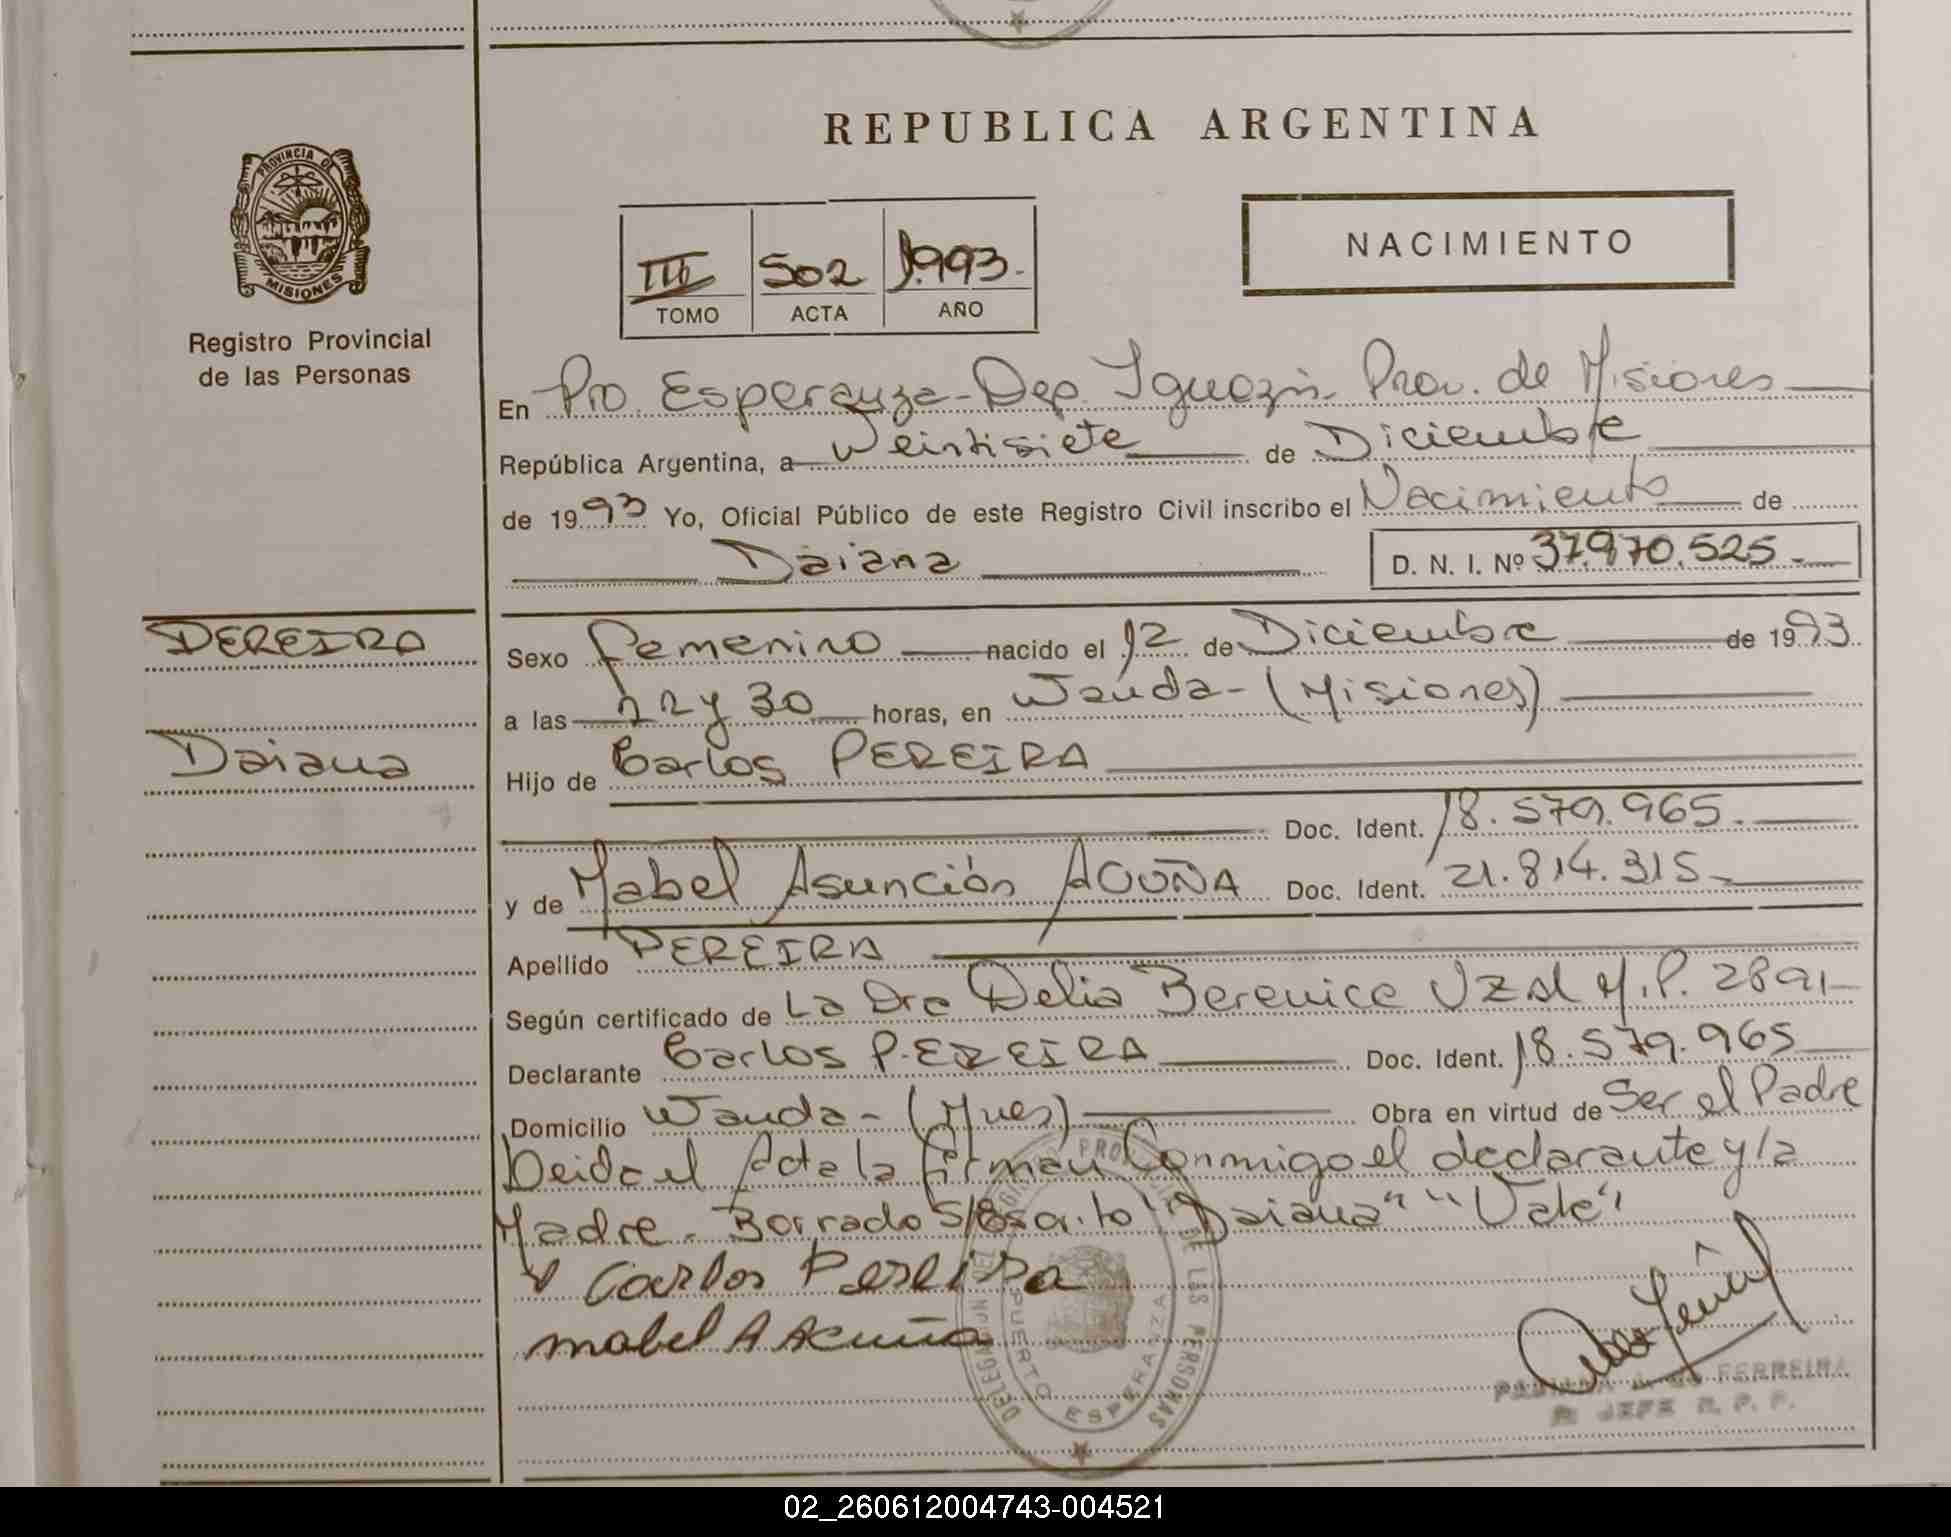 REPUBLICA ARGENTINA
PROVINCIA DE MISIONES
Registro Provincial
de las Personas
III 502 1.993.-
TOMO ACTA AÑO
NACIMIENTO
En Pto. Esperanza - Dep. Iguazú - Prov. de Misiones
República Argentina, a Veintisiete de Diciembre
de 1993 Yo, Oficial Público de este Registro Civil inscribo el Nacimiento de
Daiana D. N. I. Nº 37.970.525.-
PEREIRA
Daiana
Sexo femenino nacido el 12 de Diciembre de 1993.
a las 22 y 30 horas, en Wanda - (Misiones)
Hijo de Carlos PEREIRA
Doc. Ident. 18.579.965.
y de Mabel Asunción ACUÑA Doc. Ident. 21.814.315.-
Apellido PEREIRA
Según certificado de La Dra Delia Berenice M.P. 2891
Declarante Carlos PEREIRA Doc. Ident. 18.579.965
Domicilio Wanda - (Mnes) Obra en virtud de Ser el Padre
Leida el Acta la firman Conmigo el declarante y la
Madre. Borrado S/Escrito "Daiana" "Vale"
Carlos Pereira
Mabel A Acuña
DELEGACION DEL REGISTRO PROVINCIAL DE LAS PERSONAS
PUERTO ESPERANZA
FERREIRA
JEFE R. P. P.
02_260612004743-004521